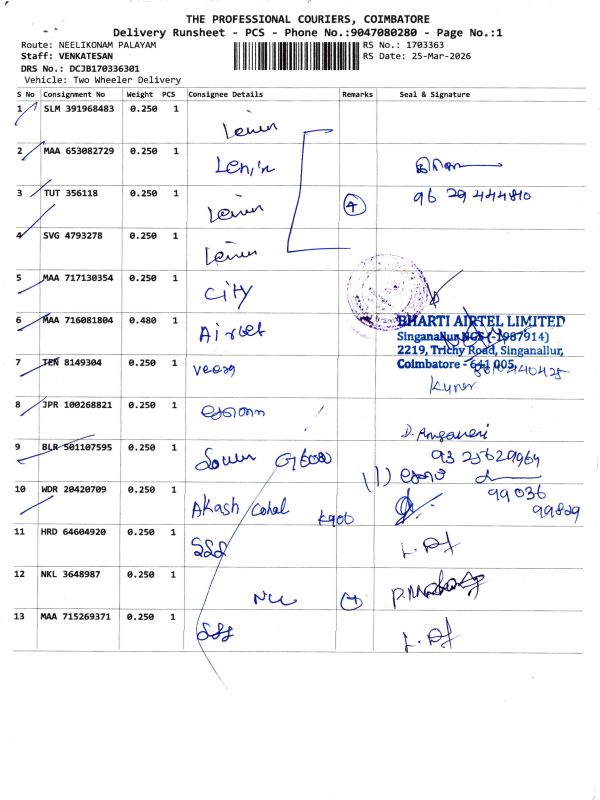 THE PROFESSIONAL COURIERS, COIMBATORE
Delivery Runsheet - PCS - Phone No.:9047080280 - Page No.:1
Route: NEELIKONAM PALAYAM
RS No.: 1703363
Staff: VENKATESAN
RS Date: 25-Mar-2026
DRS No.: DCJB170336301
Vehicle: Two Wheeler Delivery
S No Consignment No Weight PCS Consignee Details Remarks Seal & Signature
1 SLM 391968483 0.250 1 Lenin
2 MAA 653082729 0.250 1 Lenin
3 TUT 356118 0.250 1 Lenin 4 96 29 444810
4 SVG 4793278 0.250 1 Lenin
5 MAA 717130354 0.250 1 City
6 MAA 716081804 0.480 1 Airtel
BHARTI AIRTEL LIMITED
Singanallur
2219, Trichy Road, Singanallur,
Coimbatore - 641 005,
7 TEN 8149304 0.250 1
Kumar
8 JPR 100268821 0.250 1
9 BLR 501107595 0.250 1
93 25629964
10 WDR 20420709 0.250 1 Akash
99036
99829
11 HRD 64604920 0.250 1
12 NKL 3648987 0.250 1
13 MAA 715269371 0.250 1